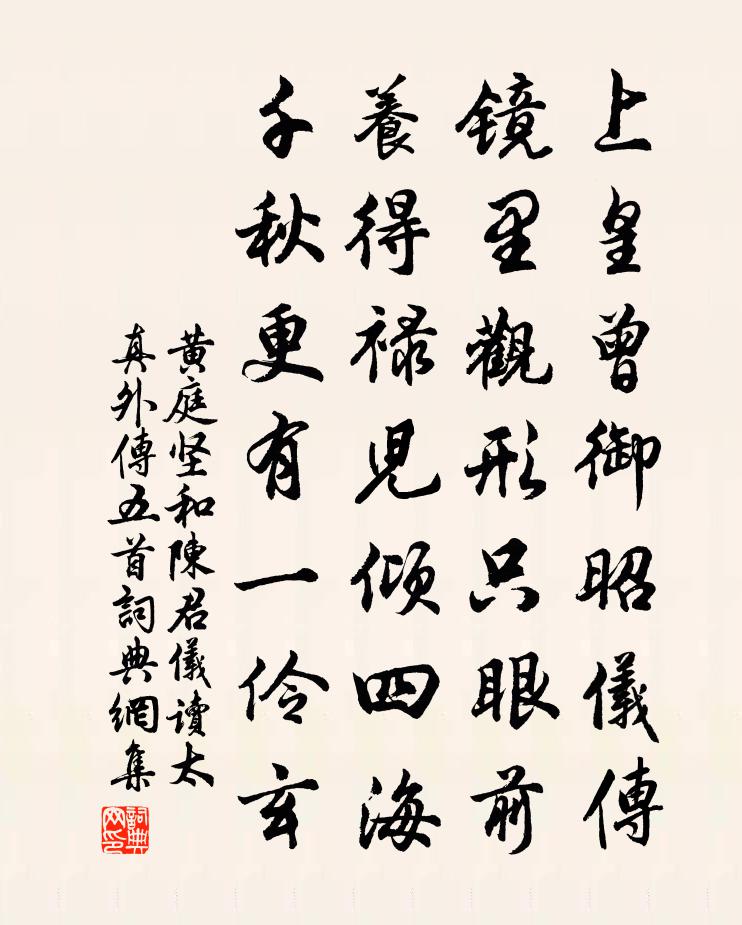 上皇曾御昭儀傳
鏡里觀形只眼前
養得禄児傾四海
千秋更有一伶玄
黄庭坚和陳君儀讀太
真外傳五首詞典網集
詞典
网印